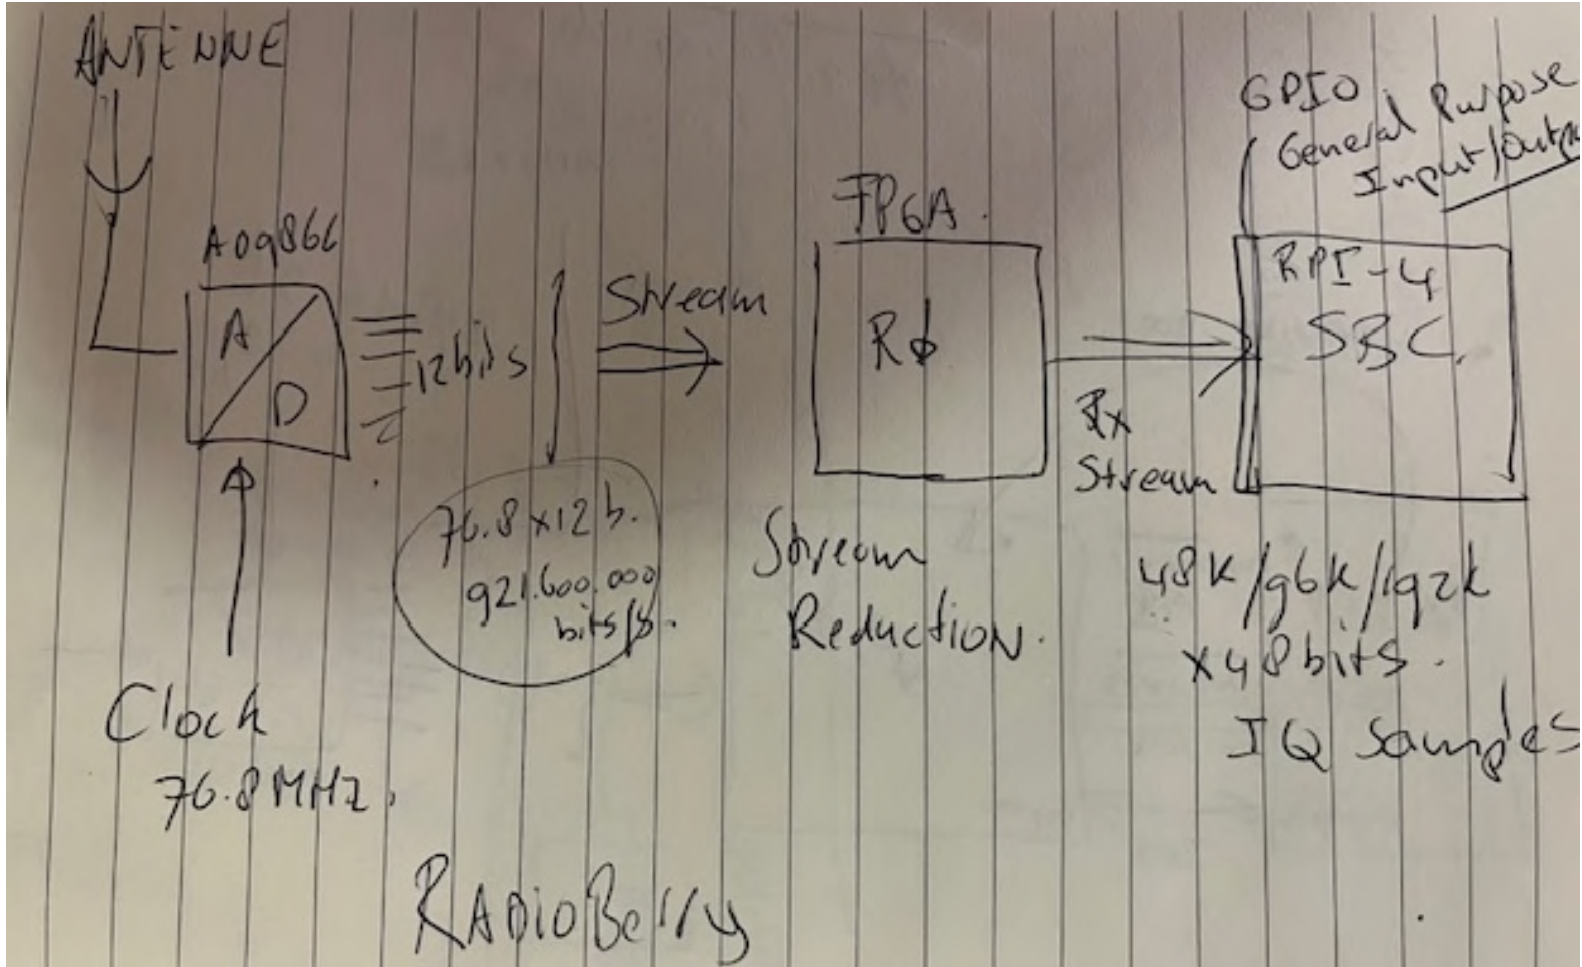 ANTENNE
AD9866
A
D
12 bits
Clock
76.8 MHz.
76.8 x 12 b.
921.600.000
bits/s.
Stream
FPGA.
Stream
Reduction.
Rx
Stream
GPIO
General Purpose
Input/Outpu
RPI-4
SBC.
48k/96k/192k
x48 bits.
IQ samples
RADioBerry